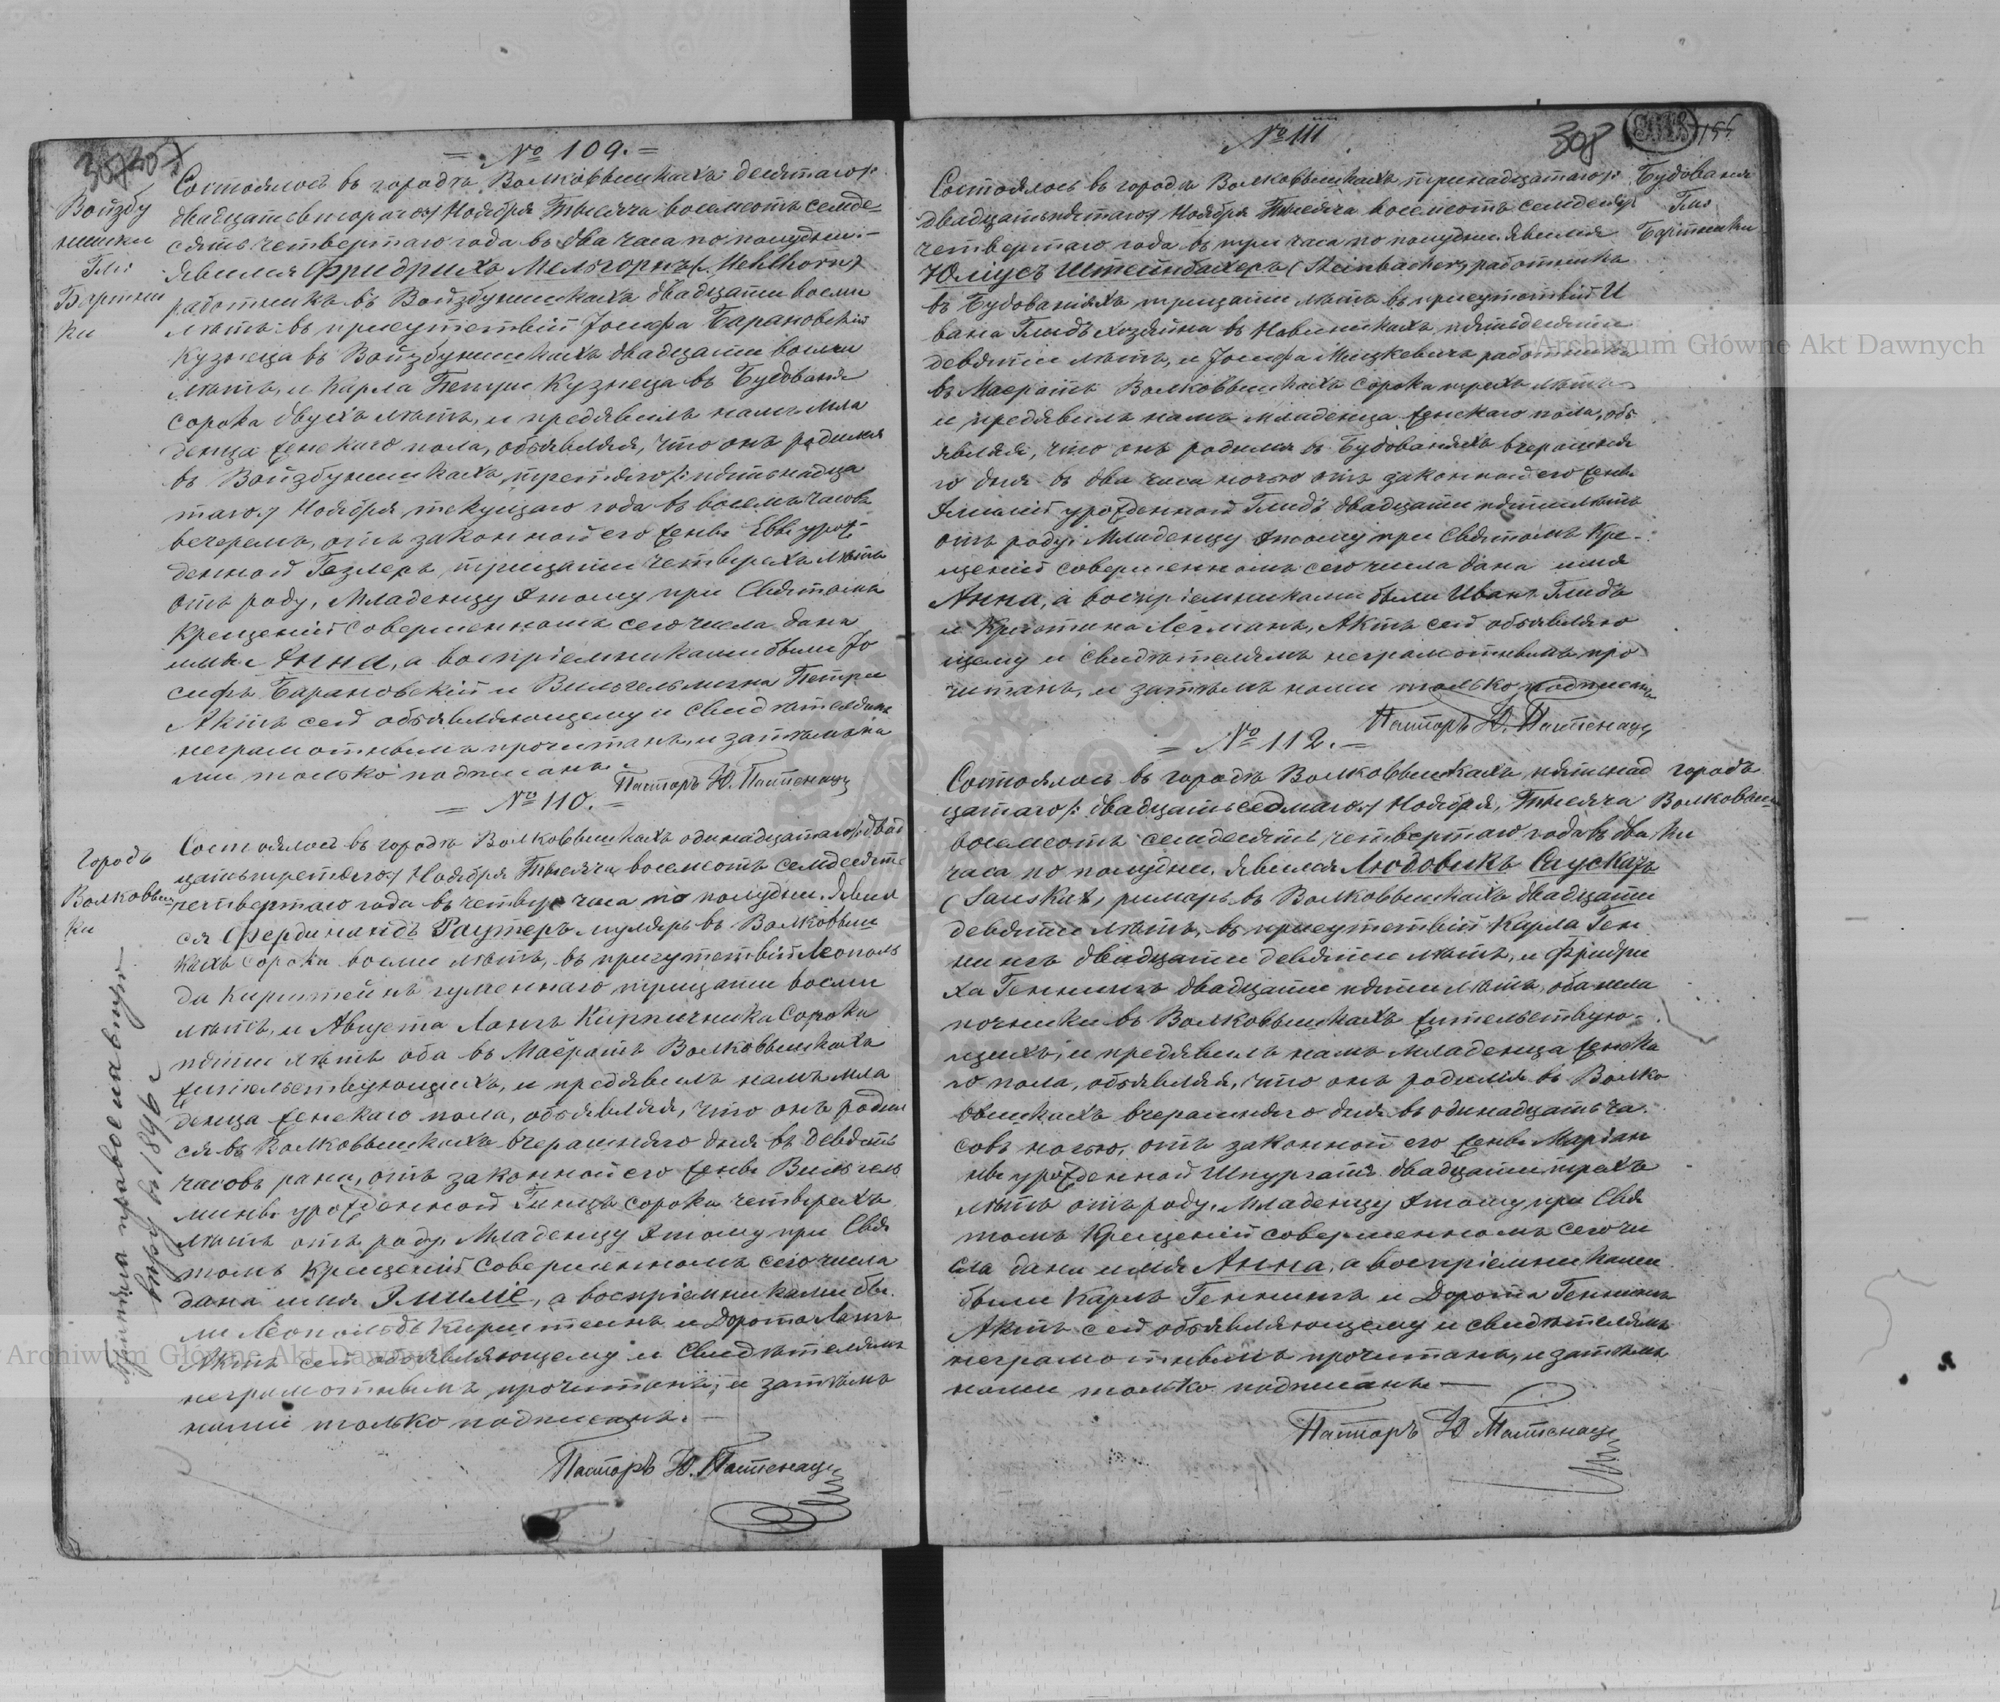 = № 109. =
Войзбу
нишки
Гми
Бартни
ки
Состоялось въ городѣ Волковышкахъ десятаго/:
двадцать втораго:/ Ноября Тысяча восемьсотъ семде=
сятъ четвертаго года въ два часа по полудни.–
Явился Фридрихъ Мельгорнъ (Mehlhorn)
работникъ въ Войзбунишкахъ двадцати восьми
лѣтъ въ присутствіи Іосифа Барановскій
кузнеца въ Войзбунишкахъ двадцати восьми
лѣтъ, и Карла Петри кузнеца въ Будованя
сорока двухъ лѣтъ, и предявилъ намъ мла
денца женскаго пола, объявляя, что онъ родился
въ Войзбунишкахъ, третяго/: пятьнадца
таго:/ Ноября текущаго года въ восемь часовъ
вечеромъ, отъ законной его жены Евы урож=
денной Гезлеръ, трицати четырехъ лѣтъ
отъ роду, Младенцу этому при Святомъ
Крещеніи совершенномъ сего числа дана
имя Анна, а воспріемниками были Іо
сифъ Барановскій и Вильгельмина Петри
Актъ сей объявляющему и свидѣтелямъ
неграмотнымъ прочитанъ, и затѣмъ на
ми только подписанъ.
Пасторъ Ю. Пастенаци
= № 110. =
городъ
Волковыш
ки
Состоялось въ городѣ Волковышкахъ одинадцатаго/: двад
цать третьяго:/ Ноября Тысяча восемьсотъ семдесятъ
четвертаго года въ четыре часа по полудни. Явил
ся Фердинандъ Раутеръ муляръ въ Волковыш
кахъ сорока восьми лѣтъ, въ присутствіи Леополь
да Кирштейнъ гуменнаго трицати восьми
лѣтъ, и Августа Лангъ Кирпичника сорока
пяти лѣтъ оба въ Маёратъ Волковышкахъ
жительствующихъ, и предявилъ намъ мла
денца женскаго пола, объявляя, что онъ родил
ся въ Волковышкахъ вчерашняго дня въ девять
часовъ рана, отъ законной его жены Вильгель
мины урожденной Гинцъ сорока четырехъ
лѣтъ отъ роду. Младенцу этому при Свя
томъ Крещеніи совершенномъ сего числа
дана имя Эмиліе, а воспріемниками бы
ли Леопольдъ Кирштейнъ и Дорота Лангъ
Актъ сей объявляющему и свидѣтелямъ
неграмотнымъ, прочитанъ, и затѣмъ
нами только подписанъ. –
Пасторъ Ю. Пастенаци
Приняла православную
вѣру въ 1896 г
№ 111
308
Будованя
Гми
Бартники
Состоялось въ городѣ Волковышкахъ тринадцатаго/:
двадцать пятаго:/ Ноября Тысяча восемьсотъ семдесятъ
четвертаго года въ три часа по полудни. Явился
Юлиусъ Штейнбахеръ (Steinbacher) работникъ
въ Будованіяхъ трицати лѣтъ въ присутствіи И
вана Глидъ хозяина въ Новиникахъ пятьдесяти
девяти лѣтъ, и Іосифа Мицкевичъ работника
въ Маёратъ Волковышкахъ сорока трехъ лѣтъ
и предявилъ намъ младенца женскаго пола, объ
являя, что онъ родился въ Будованяхъ вчерашня
го дня въ два часа ночью отъ законной его жены
Эмиліи урожденной Глидъ двадцати пяти лѣтъ
отъ роду. Младенцу этому при Святомъ Кре=
щеніи совершенномъ сего числа дана имя
Анна, а воспріемниками были Иванъ Глидъ
и Кристина Легманъ, Актъ сей объявляю
щему и свидѣтелямъ неграмотнымъ про
читанъ, и затѣмъ нами только подписанъ
Пасторъ Ю. Пастенаци
= № 112. =
городъ
Волковыш
ки
Состоялось въ городѣ Волковышкахъ, пятьнад
цатаго/: двадцать седмаго:/ Ноября, Тысяча
восемсотъ семдесятъ четвертаго года въ два
часа по полудни. Явился Людовикъ Саускатъ
(Sauskat) римаръ въ Волковышкахъ двадцати
девяти лѣтъ, въ присутствіи Карла Ген
нингъ двадцати девяти лѣтъ, и Фридри
ха Геннингъ двадцати пяти лѣтъ, оба мела
почники въ Волковышкахъ жительствую=
щихъ, и предявилъ намъ младенца женска
го пола, объявляя, что онъ родился въ Волко
вышкахъ вчерашняго дня въ одинадцать ча
совъ ночью, отъ законной его жены Маріан
ны урожденной Шпургатъ двадцати трехъ
лѣтъ отъ роду. Младенцу этому при Свя
томъ Крещеніи совершенномъ сего чи
сла дана имя Анна, а воспріемниками
были Карлъ Геннингъ и Дорота Геннингъ
Актъ сей объявляющему и свидѣтелямъ
неграмотнымъ прочитанъ, и затѣмъ
нами только подписанъ. —
Пасторъ Ю Пастенаци
Archiwum Główne Akt Dawnych
Archiwum Główne Akt Dawnych